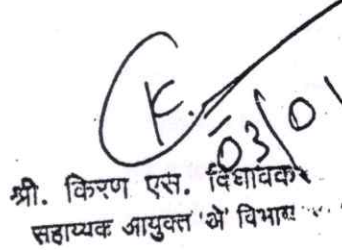 K.
03/01
श्री. किरण एस. दिघावकर
सहाय्यक आयुक्त 'ऐ' विभाग